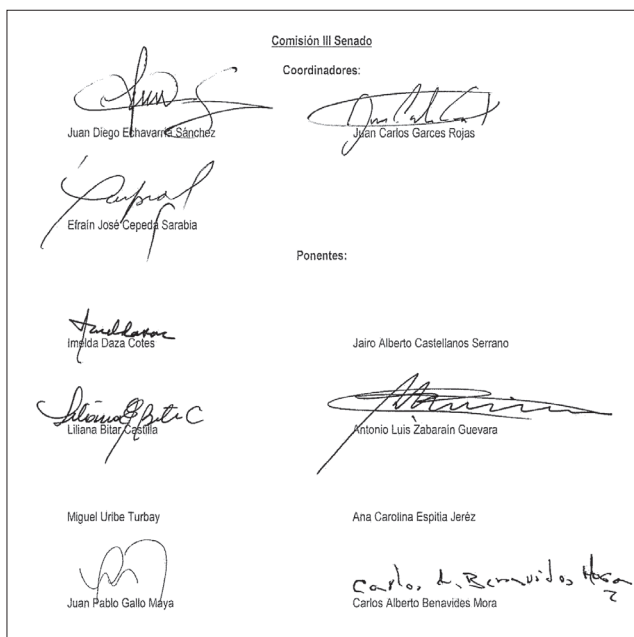 Comisión III Senado
Coordinadores:
Juan Diego Echavarría Sánchez
Juan Carlos Garces Rojas
Efraín José Cepeda Sarabia
Ponentes:
Imelda Daza Cotes
Jairo Alberto Castellanos Serrano
Liliana Bitar C
Liliana Bitar Castilla
Antonio Luis Zabaraín Guevara
Miguel Uribe Turbay
Ana Carolina Espitia Jeréz
Juan Pablo Gallo Maya
Carlos A. Benavides Mora
Carlos Alberto Benavides Mora